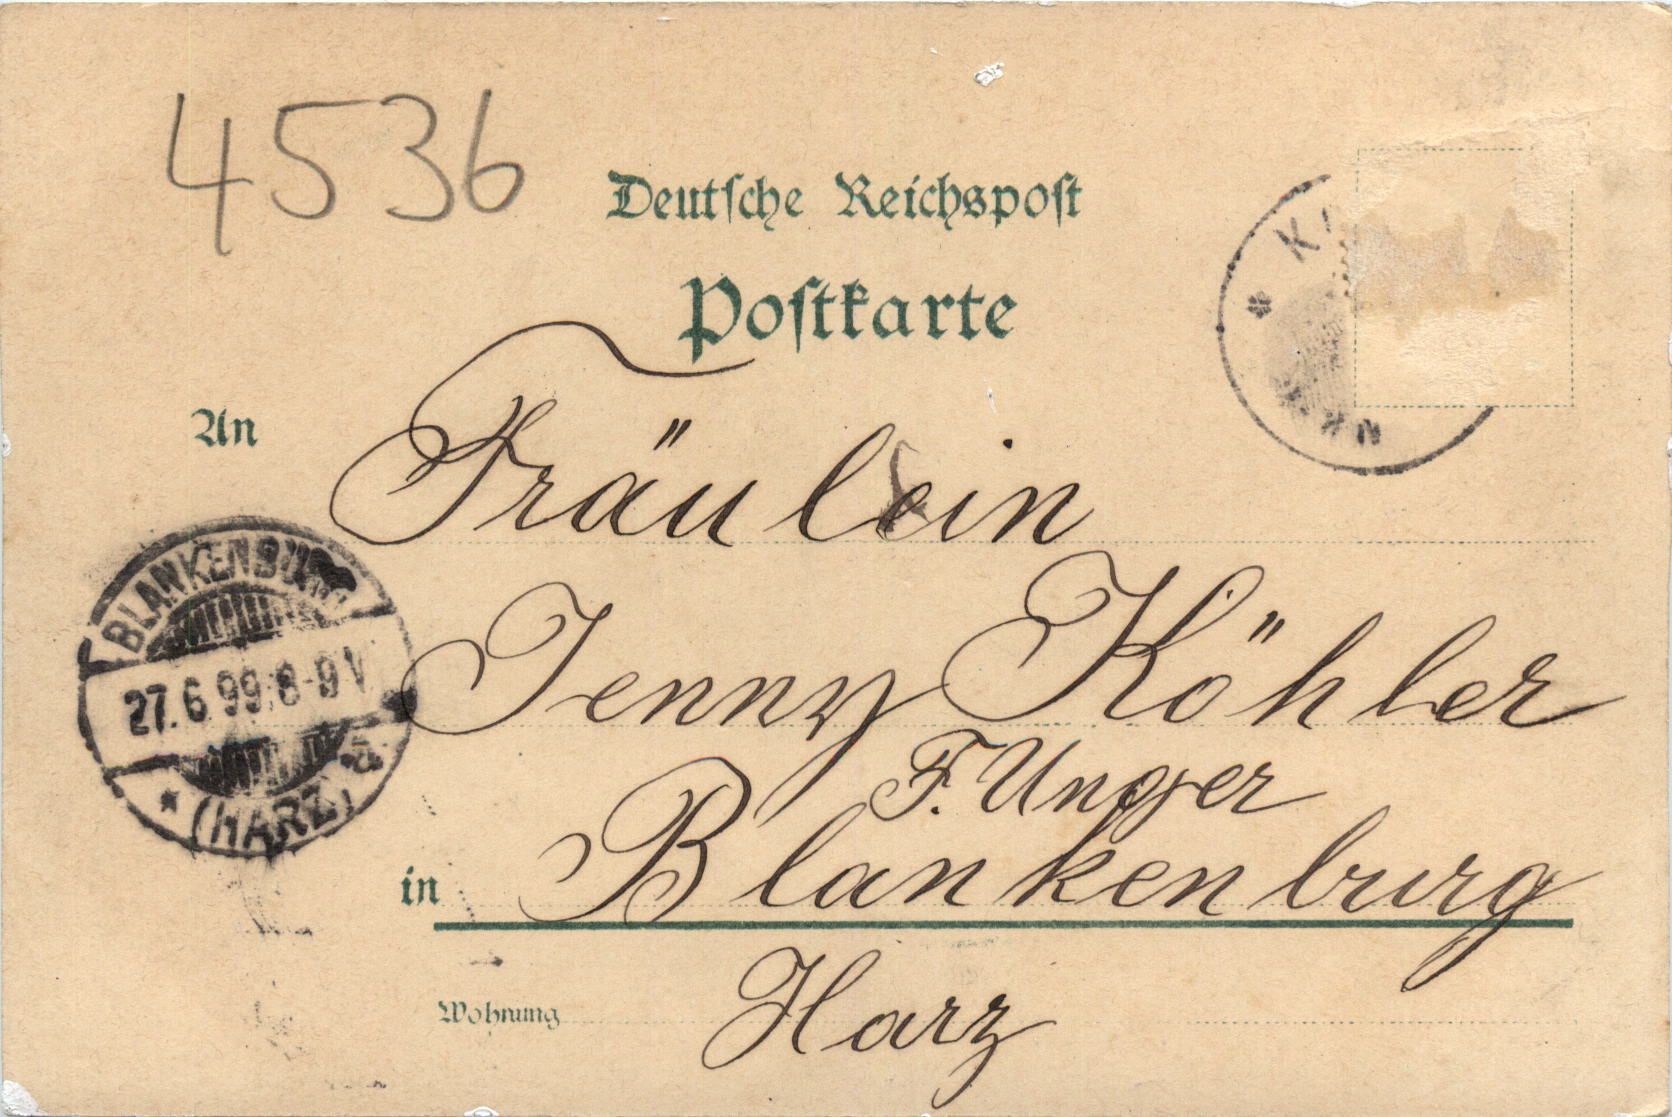 4536
Deutsche Reichspost
Postkarte
An Fräulein
Jenny Köhler
F. Unger
in Blankenburg
Wohnung Harz
BLANKENBURG
27.6.99.8-9V
* (HARZ) a